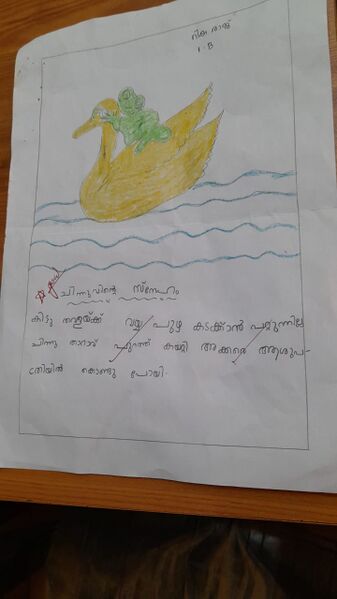 നിക്ഷ രാജ്
1-B
ചിന്നുവിന്റെ സ്നേഹം
കിട്ടു തവളയ്ക്ക് വയ്യ പുഴ കടക്കാൻ പറ്റുന്നില്ല
ചിന്നു താറാവ് പുറത്ത് കയറ്റി അക്കരെ ആശുപ-
ത്രിയിൽ കൊണ്ടു പോയി.